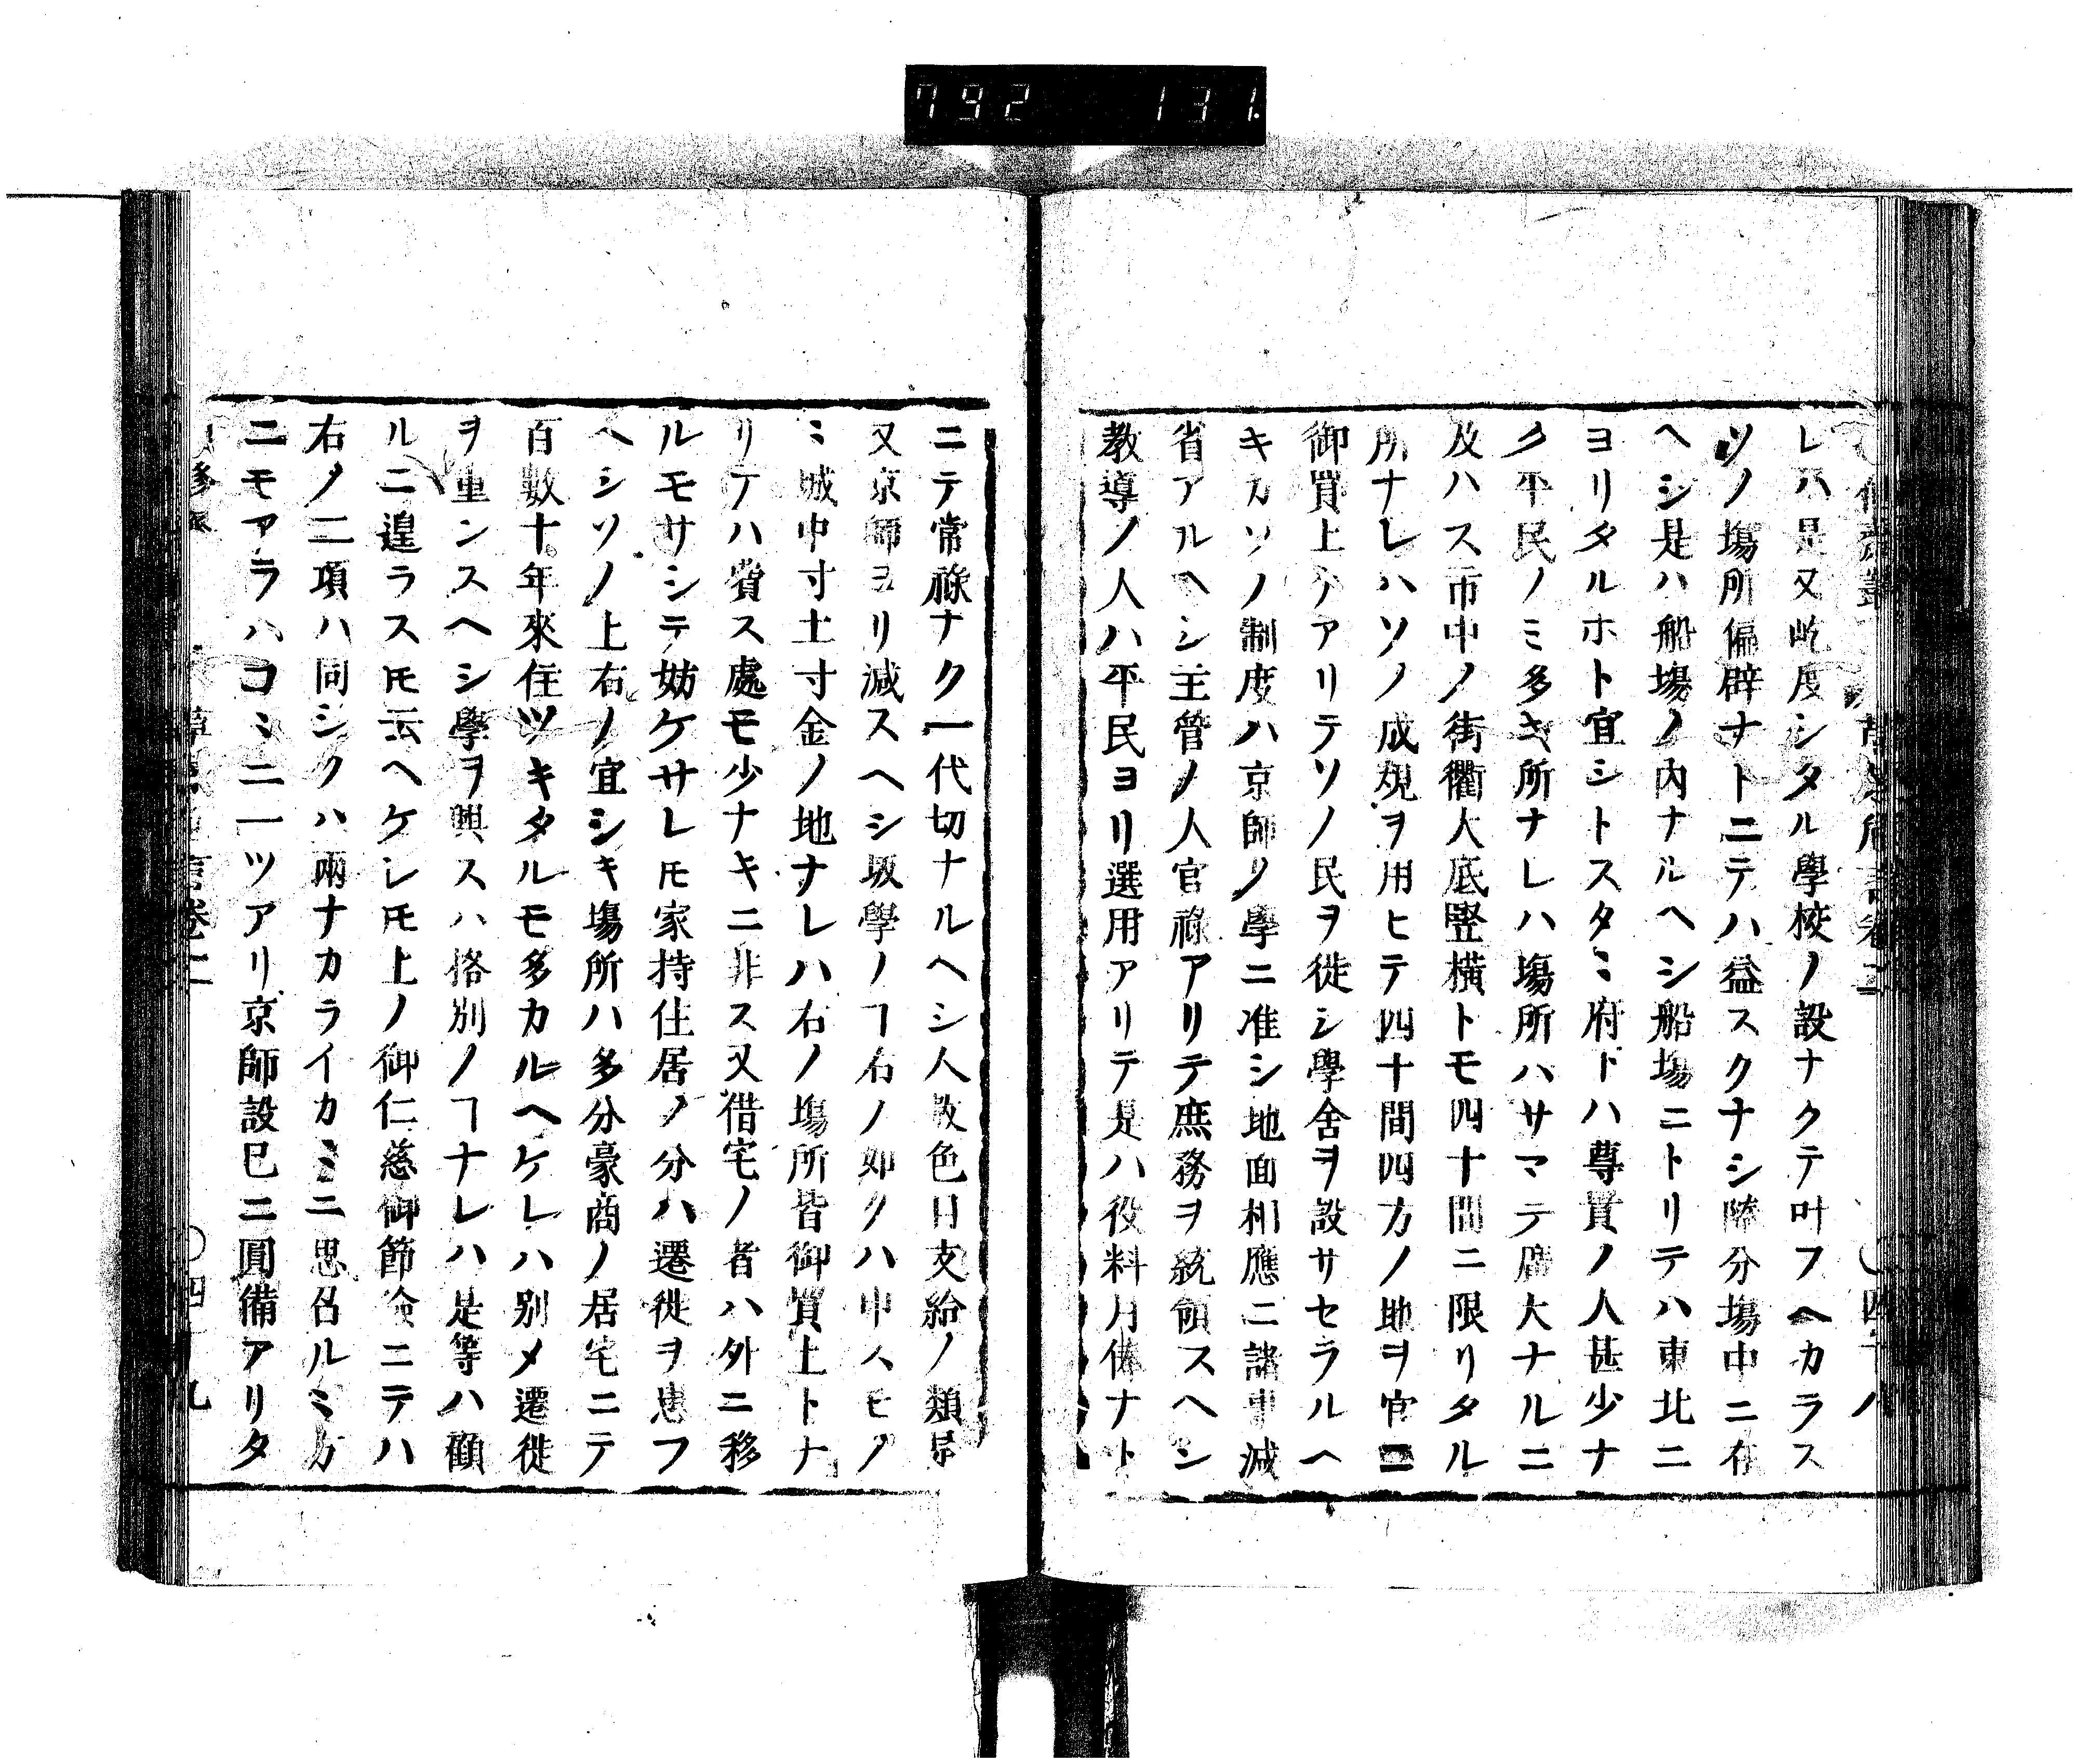 792 131
レハ是又屹度シタル學校ノ設ナクテ叶フヘカラス
ソノ塲所偏辟ナトニテハ益スクナシ随分塲中ニ在
ヘシ是ハ船塲ノ内ナルヘシ船塲ニトリテハ東北ニ
ヨリタルホト宜シトスタミ府下ハ尊貴ノ人甚少ナ
ク平民ノミ多キ所ナレハ塲所ハサマテ廣大ナルニ
及ハス市中ノ街衢大底竪横トモ四十間ニ限リタル
所ナレハソノ成規ヲ用ヒテ四十間四方ノ地ヲ官ニ
御買上ケアリテソノ民ヲ徙シ學舍ヲ設サセラルヘ
キカソノ制度ハ京師ノ學ニ准シ地面相應ニ諸事減
省アルヘシ主管ノ人官祿アリテ庶務ヲ統領スヘシ
教導ノ人ハ平民ヨリ選用アリテ是ハ役料月俸ナト
ニテ常祿ナク一代切ナルヘシ人数色目支給ノ類昂
又京師ヨリ減スヘシ坂學ノヿ右ノ如クハ申スヒノ
ミ城中寸土寸金ノ地ナレハ右ノ塲所皆御買上トナ
リテハ賞ス處モ少ナキニ非ス又借宅ノ者ハ外ニ移
ルモサシテ妨ケサレモ家持住居ノ分ハ遷徙ヲ患フ
ヘシソノ上右ノ宜シキ塲所ハ多分豪商ノ居宅ニテ
百數十年來住ツキタルモ多カルヘケレハ别メ遷徙
ヲ重ンスヘシ學ヲ興スハ格别ノヿナレハ是等ハ顧
ルニ遑ラスモ云ヘケレモ上ノ御仁慈御節儉ニテハ
右ノ二項ハ同シクハ兩ナカライカミニ思召ルミカ
ニモアラハコミニ一ツアリ京師設巳ニ圓備アリタ
卷二
四十九